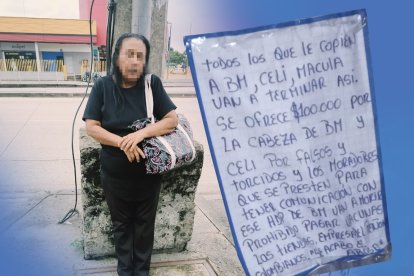 todos los que le copien
A BM, CELI, MACUIA
VAN A TERMINAR ASI.
SE OFRECE $100.000 POR
LA CABEZA DE BM Y
CELI POR FALSOS Y
TORCIDOS Y LOS MORADORES
QUE SE PRESTEN PARA
TENER COMUNICACION CON
ESE HDP DE BM VAN A MORIR
PROHIBIDO PAGAR VACUNAS
LOS TIENDOS, EMPRESAS,